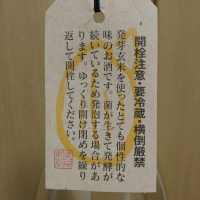 開栓注意・要冷蔵・横倒厳禁
発芽玄米を使ったとても個性的な
味のお酒です。菌が生きて発酵が
続いているため発泡する場合があ
ります。ゆっくり開け閉めを繰り
返して開栓してください。